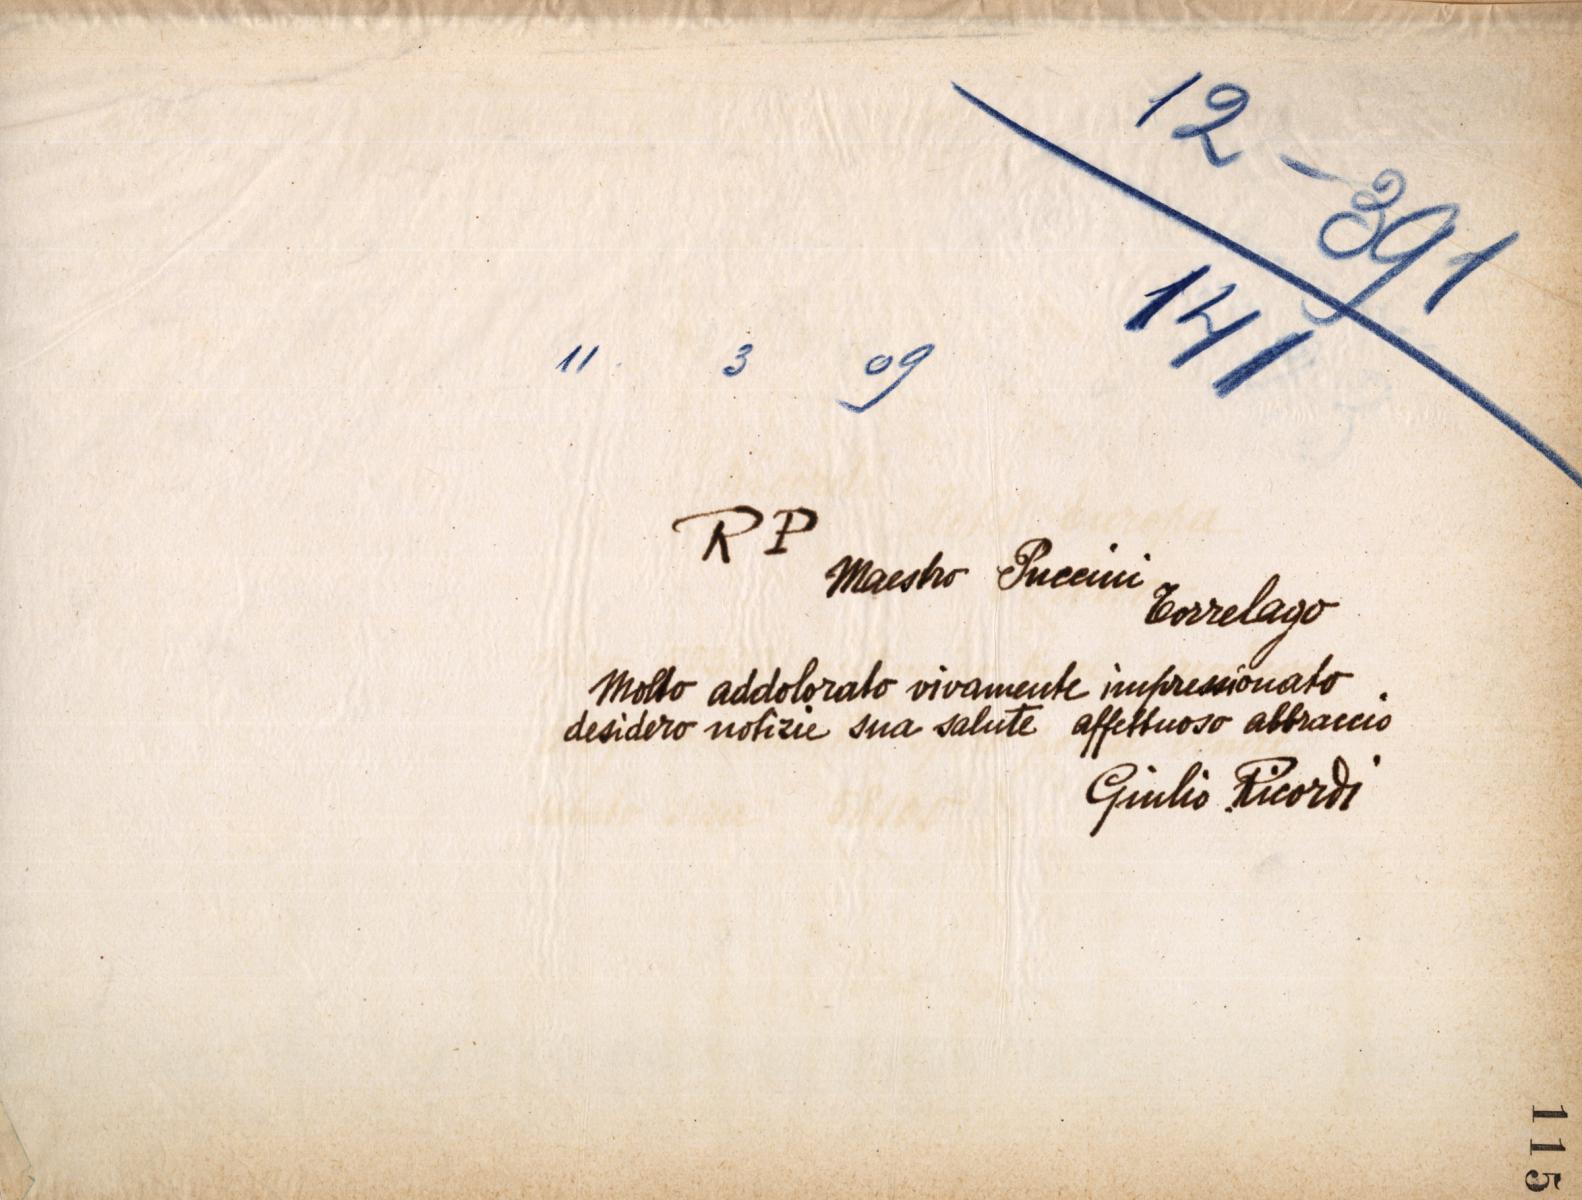 12-391
141
11. 3 09
RP
Maestro Puccini
Torrelago
Molto addolorato vivamente impressionato
desidero notizie sua salute affettuoso abbraccio
Giulio Ricordi
115